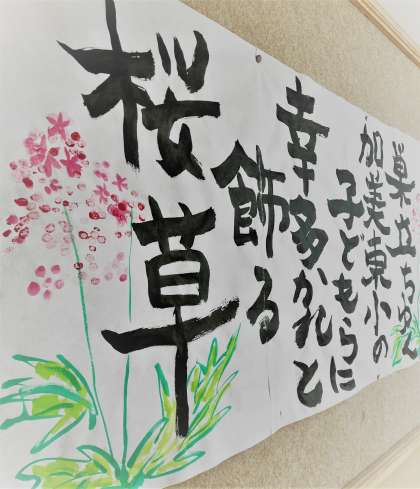 巣立ちゆく
加美東小の
子どもらに
幸多かれと
飾る
桜草